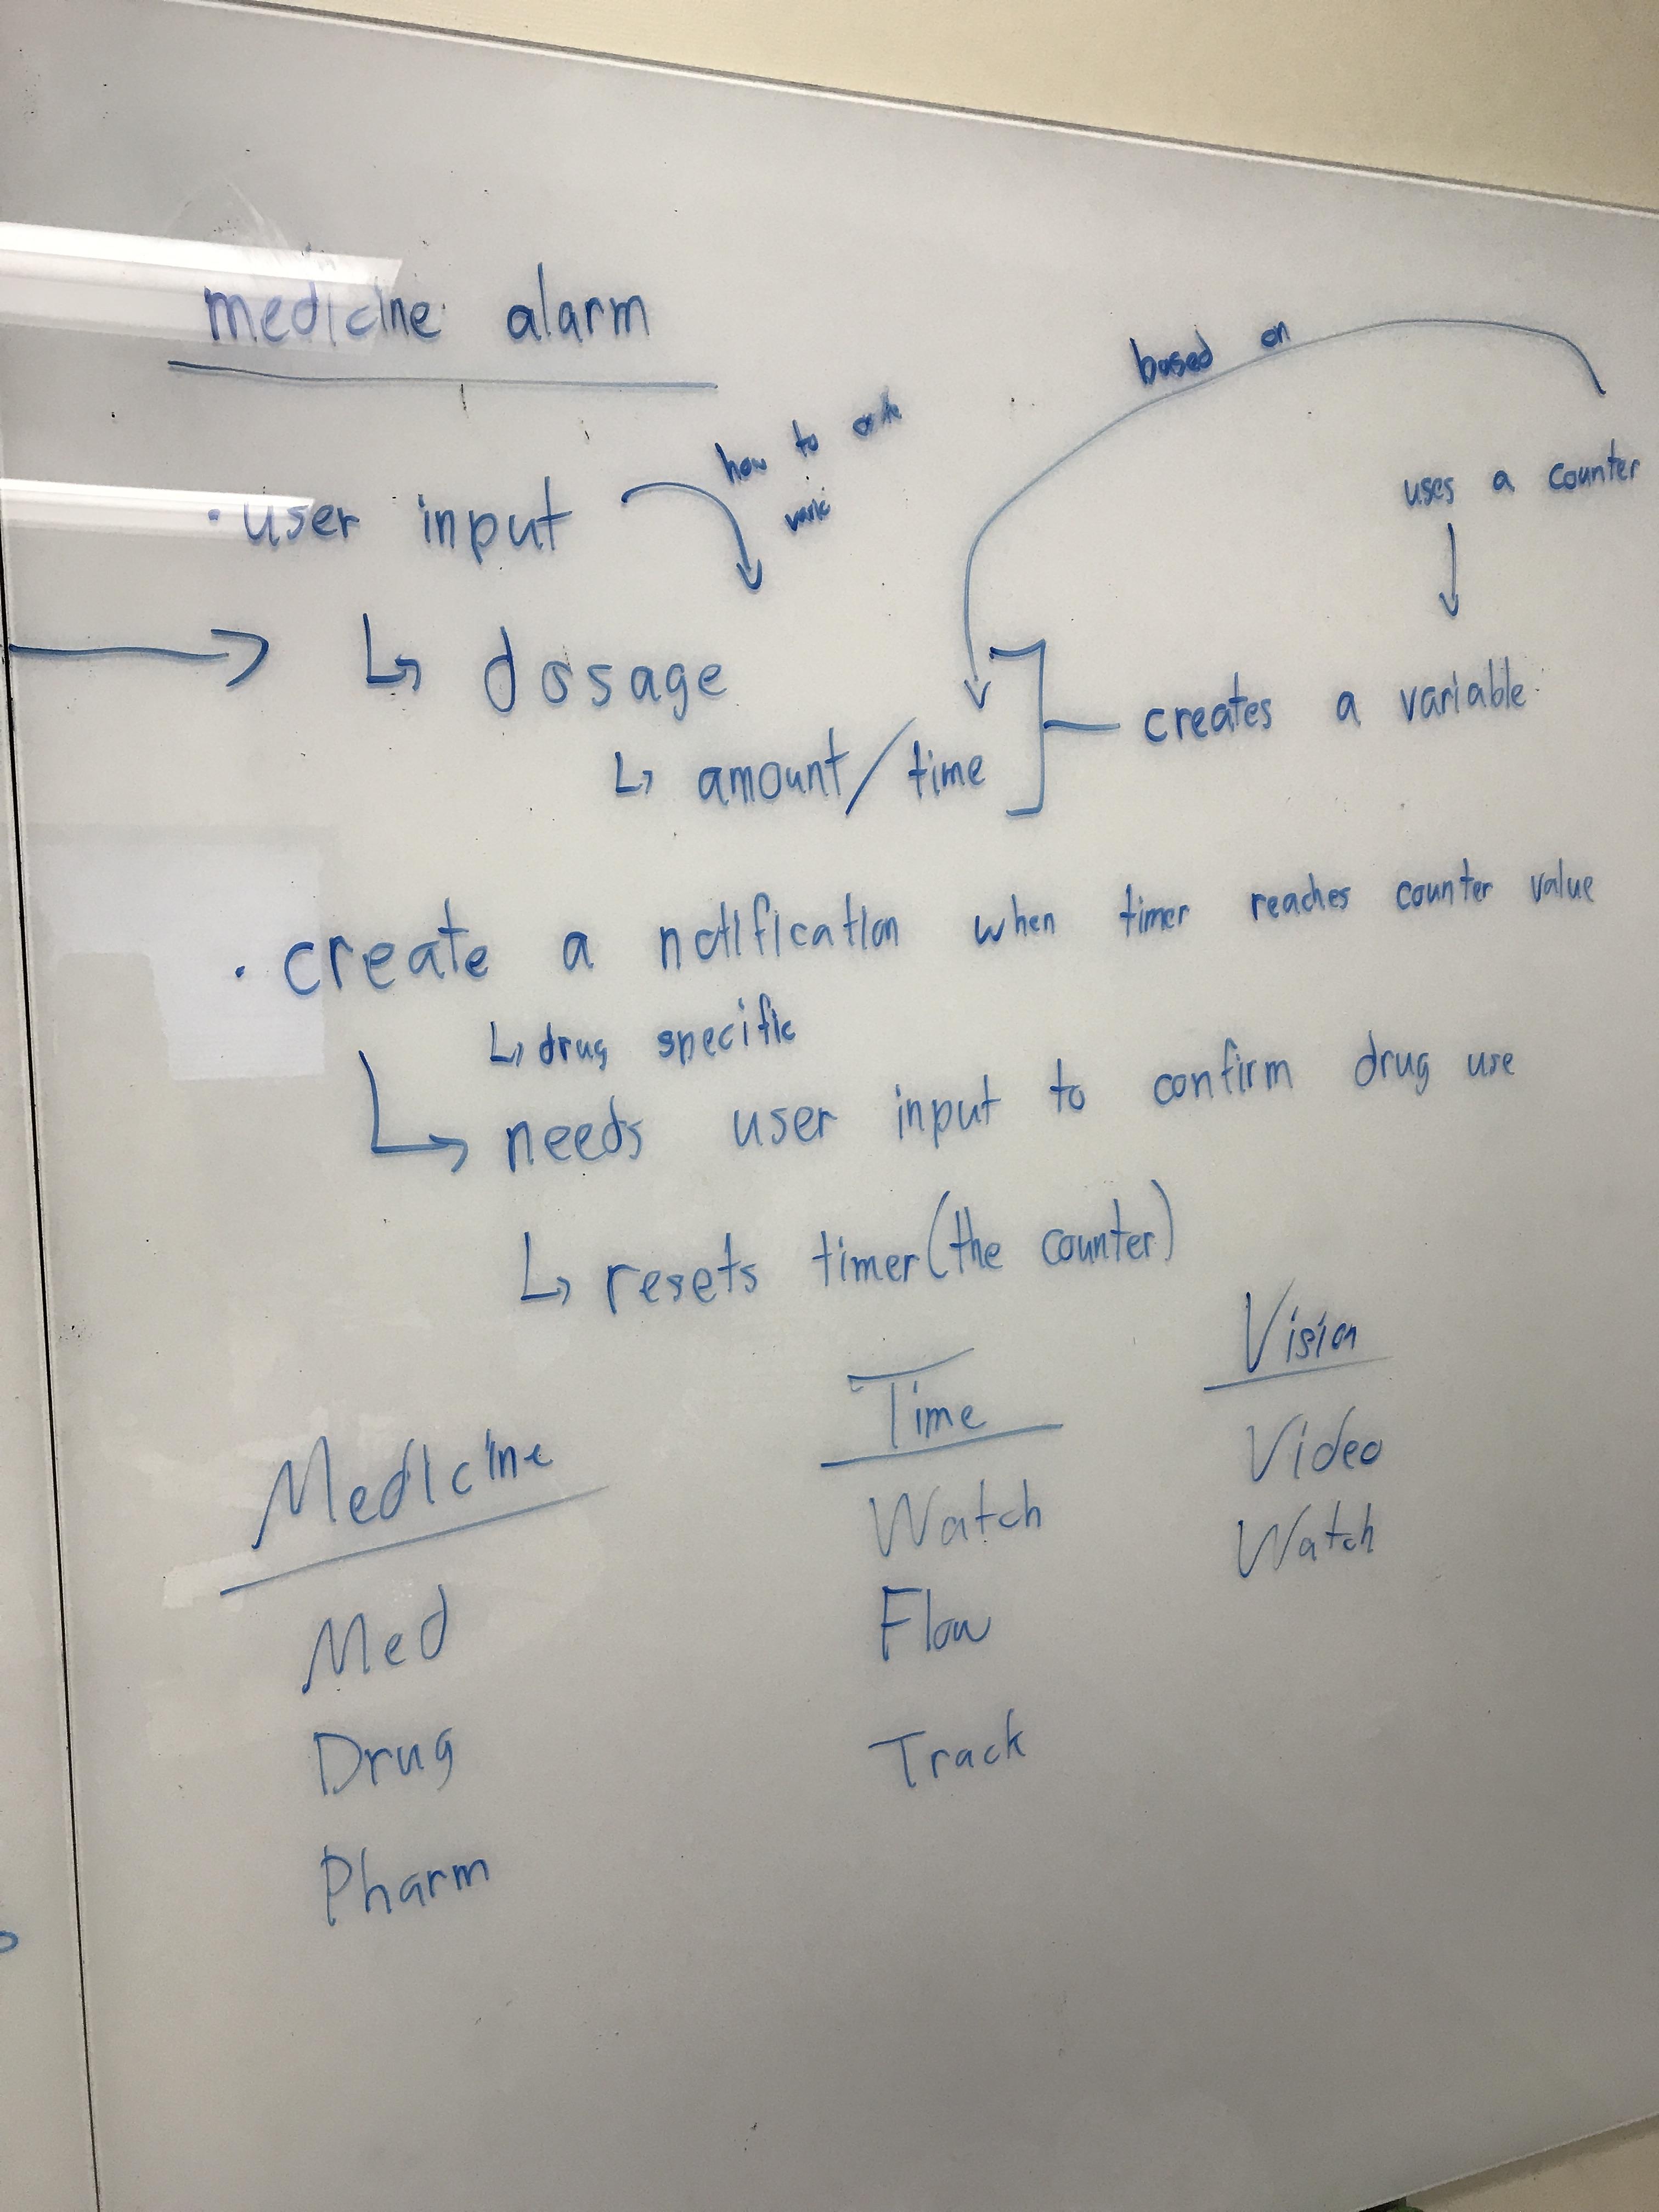 medicine alarm
based on
how to
· user input
uses a counter
↳ dosage
creates a variable
↳ amount/time
· create a notification when timer reaches counter value
↳ drug specific
↳ needs user input to confirm drug use
↳ resets timer (the counter)
Medicine
Med
Drug
Pharm
Time
Watch
Flow
Track
Vision
Video
Watch